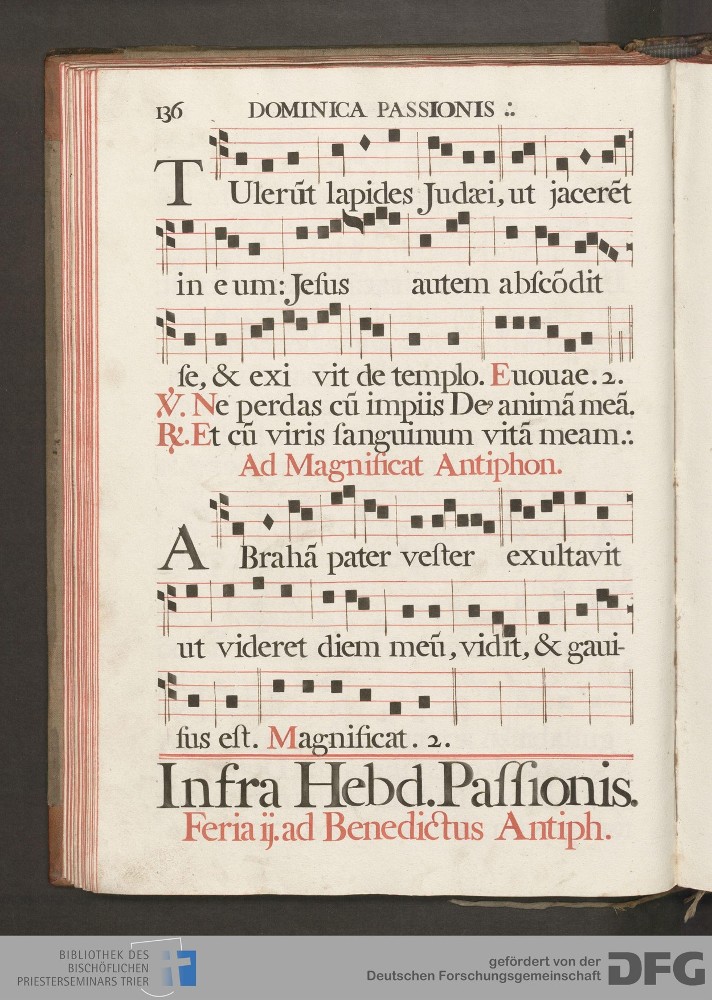 136 DOMINICA PASSIONIS ⸫
TUlerũt lapides Judæi, ut jacerẽt
in eum: Jeſus autem abſcõdit
ſe, & exi vit de templo. Euouae. 2.
℣. Ne perdas cũ impiis De9 animã meã.
℟. Et cũ viris ſanguinum vitã meam ⸫
Ad Magnificat Antiphon.
ABrahã pater veſter exultavit
ut videret diem meũ, vidit, & gaui-
ſus eſt. Magnificat. 2.
Infra Hebd. Paſſionis.
Feria ij. ad Benedictus Antiph.
BIBLIOTHEK DES
BISCHÖFLICHEN
PRIESTERSEMINARS TRIER
gefördert von der
Deutschen Forschungsgemeinschaft
DFG